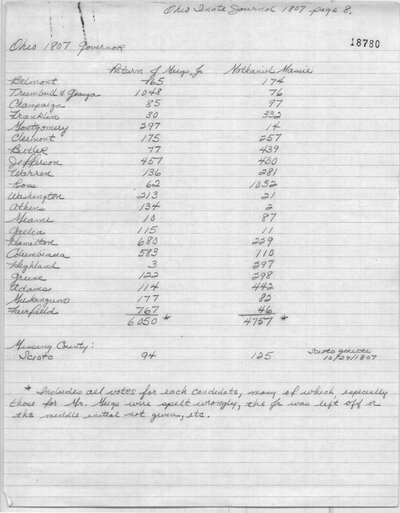 Ohio Senate Journal 1807 page 8.
Ohio 1807 Governor
18780
Return J Meigs, Jr Nathaniel Massie
Belmont 465 174
Trumbull & Geauga 1048 76
Champaign 85 97
Franklin 30 332
Montgomery 297 14
Clermont 175 257
Butler 77 439
Jefferson 457 430
Warren 136 281
Ross 62 1032
Washington 213 21
Athens 134 2
Miami 10 87
Gallia 115 11
Hamilton 680 229
Columbiana 583 110
Highland 3 297
Greene 122 298
Adams 114 442
Muskingum 177 82
Fairfield 767 46
6050 * 4757 *
Missing County:
Scioto 94 125 Scioto Gazette
10/29/1807
* Includes all votes for each candidate, many of which especially
those for Mr. Meigs were spelt wrongly, the Jr was left off or
the middle initial not given, etc.